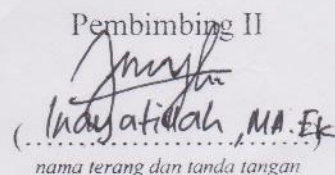 Pembimbing II
(Inayatillah, MA.Ek
nama terang dan tanda tangan